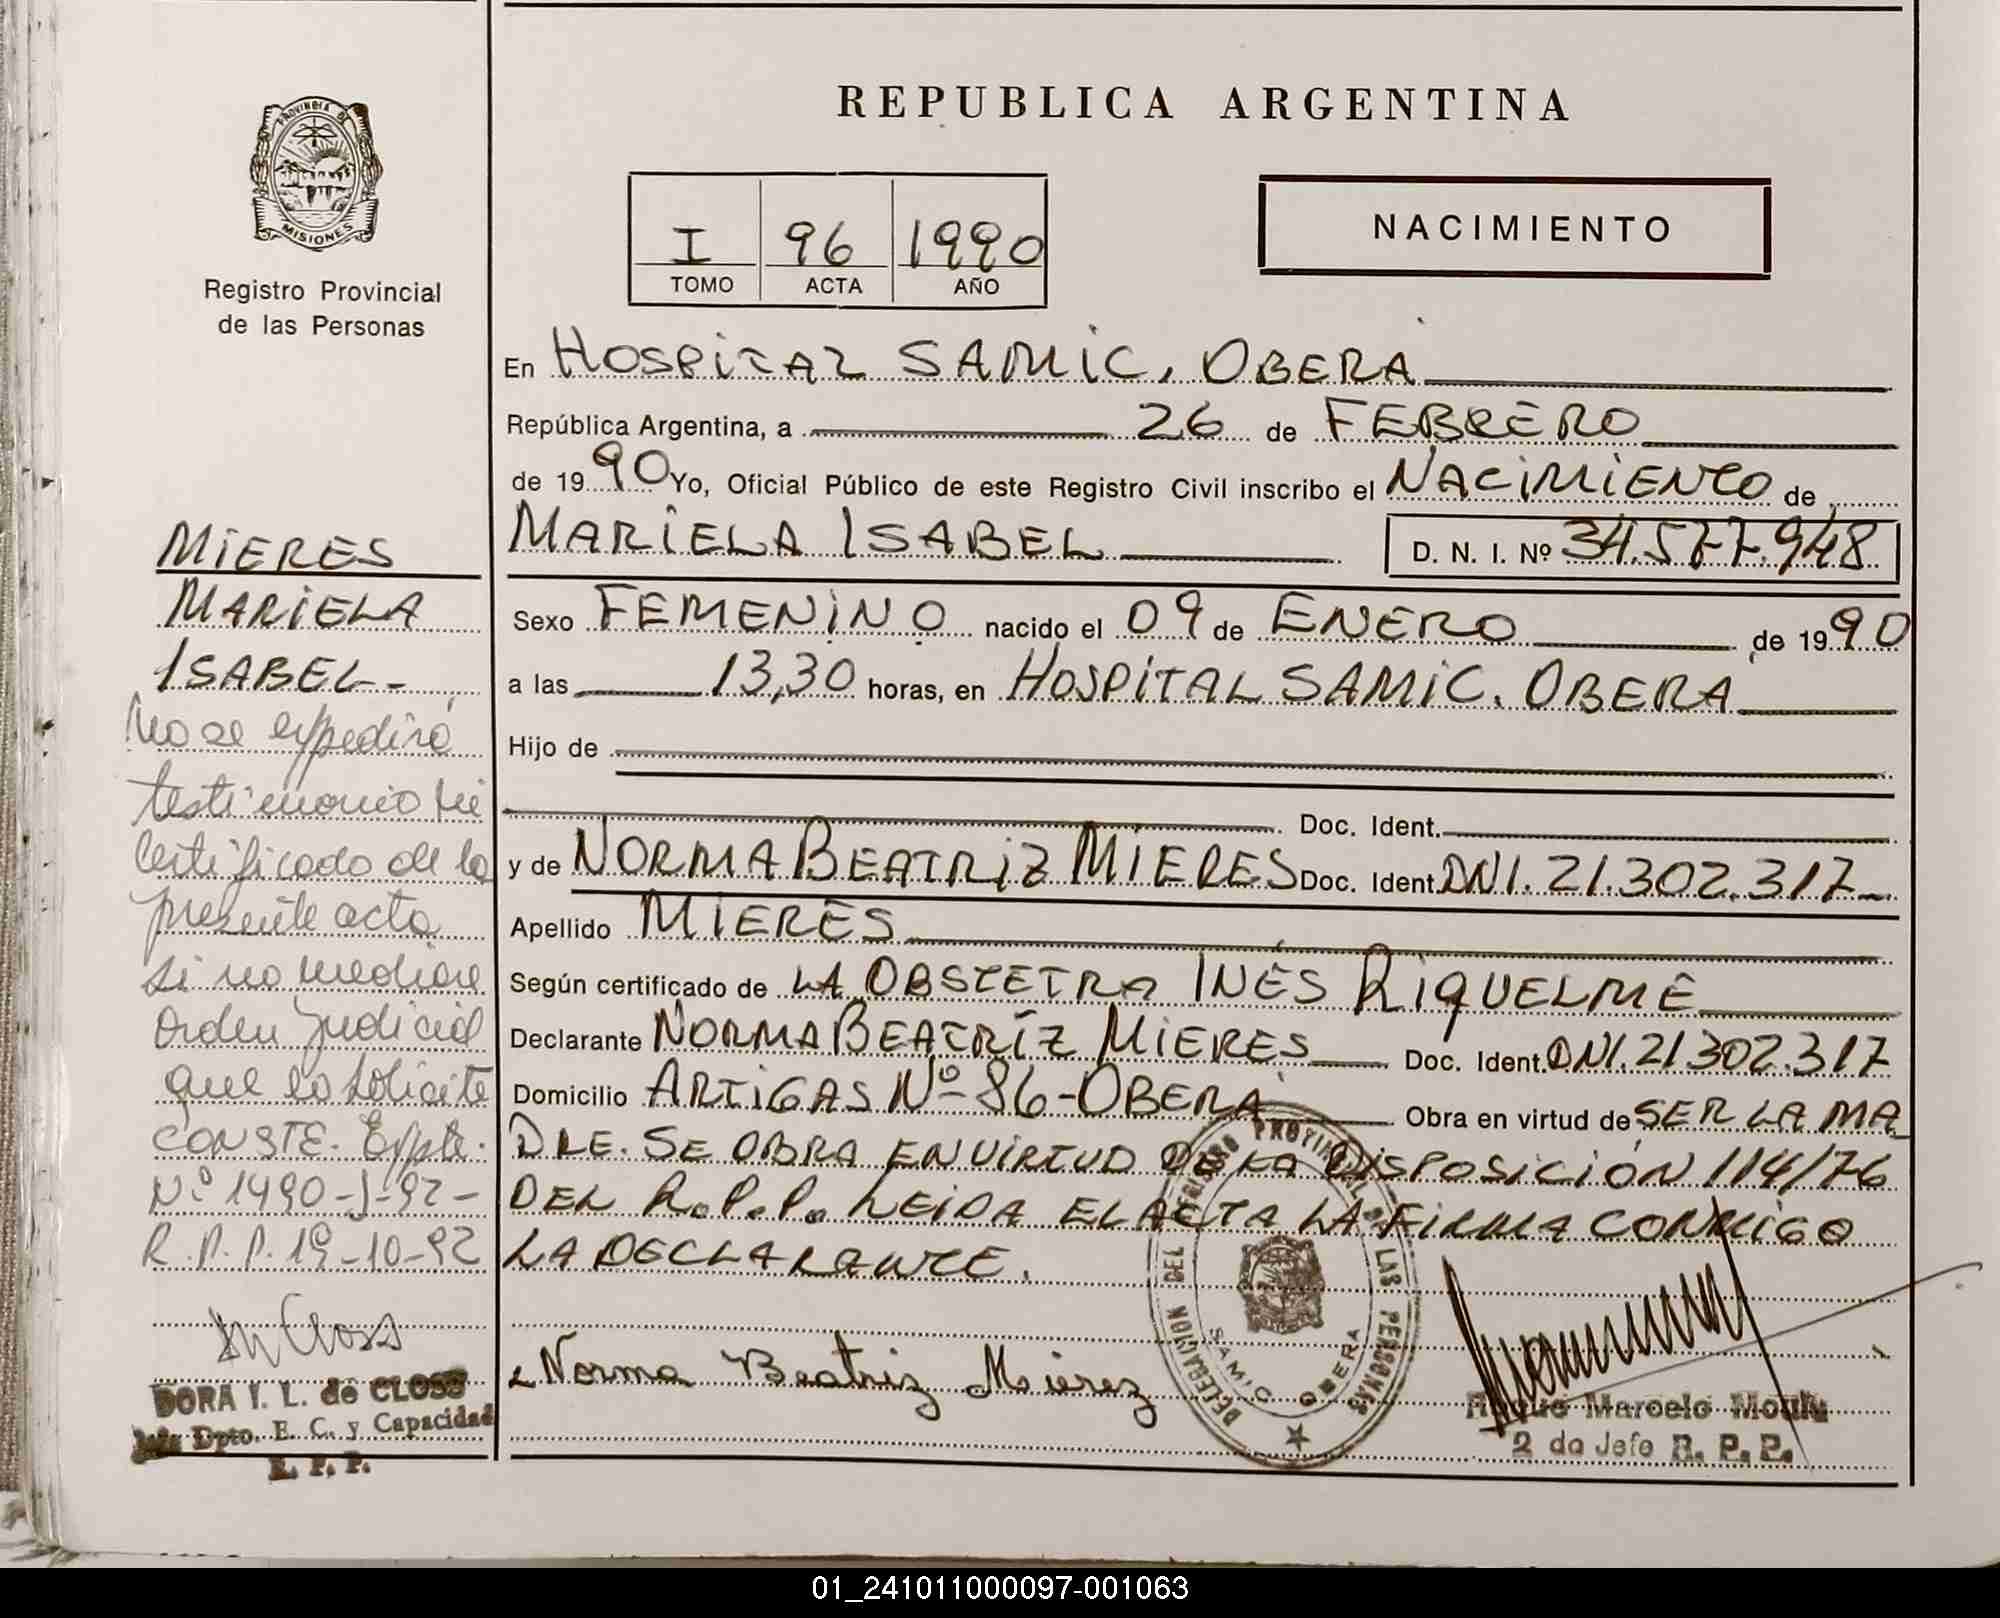 REPUBLICA ARGENTINA
PROVINCIA DE
MISIONES
Registro Provincial
de las Personas
I 96 1990
TOMO ACTA AÑO
NACIMIENTO
En HOSPITAL SAMIC, OBERA
República Argentina, a 26 de FEBRERO
de 1990 Yo, Oficial Público de este Registro Civil inscribo el NACIMIENTO de
MARIELA ISABEL D. N. I. Nº 34.577.948
Sexo FEMENINO nacido el 09 de ENERO de 1990
a las 13,30 horas, en HOSPITAL SAMIC. OBERA
Hijo de
Doc. Ident.
y de NORMA BEATRIZ MIERES Doc. Ident. DNI. 21.302.317
Apellido MIERES
Según certificado de LA OBSTETRA INÉS RIQUELME
Declarante NORMA BEATRÍZ MIERES Doc. Ident. DNI. 21302.317
Domicilio ARTIGAS Nº 86-OBERA Obra en virtud de SER LA MA
DRE. SE OBRA EN VIRTUD DE LA DISPOSICIÓN 114/76
DEL R.P.P. LEIDA EL ACTA LA FIRMA CONMIGO
LA DECLARANTE.
Norma Beatriz Mierez
DELEGACION DEL REGISTRO PROVINCIAL DE LAS PERSONAS
SAMIC OBERA
Roque Marcelo
2 do Jefe R. P. P.
MIERES
MARIELA
ISABEL-
No se expedirá
testimonio ni
certificado de la
presente acta
si no mediare
Orden Judicial
que lo solicite
CONSTE. Expte.
Nº 1490-J-92-
R.P.P. 19-10-92
DORA I. L. de CLOSS
Jefe Dpto. E. C. y Capacidad
R. P. P.
01_241011000097-001063